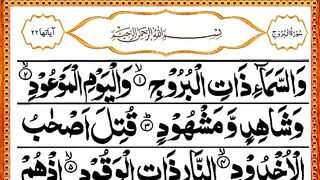 سُوْرَةُ الْبُرُوْجِ بِسْمِ اللّٰهِ الرَّحْمٰنِ الرَّحِيْمِ اٰيَاتُهَا ٢٢
وَالسَّمَآءِ ذَاتِ الْبُرُوْجِ ۙ﴿١﴾ وَالْيَوْمِ الْمَوْعُوْدِ ۙ﴿٢﴾
وَشَاهِدٍ وَّمَشْهُوْدٍ ؕ﴿٣﴾ قُتِلَ اَصْحٰبُ
الْاُخْدُوْدِ ۙ﴿٤﴾ النَّارِ ذَاتِ الْوَقُوْدِ ۙ﴿٥﴾ اِذْهُمْ